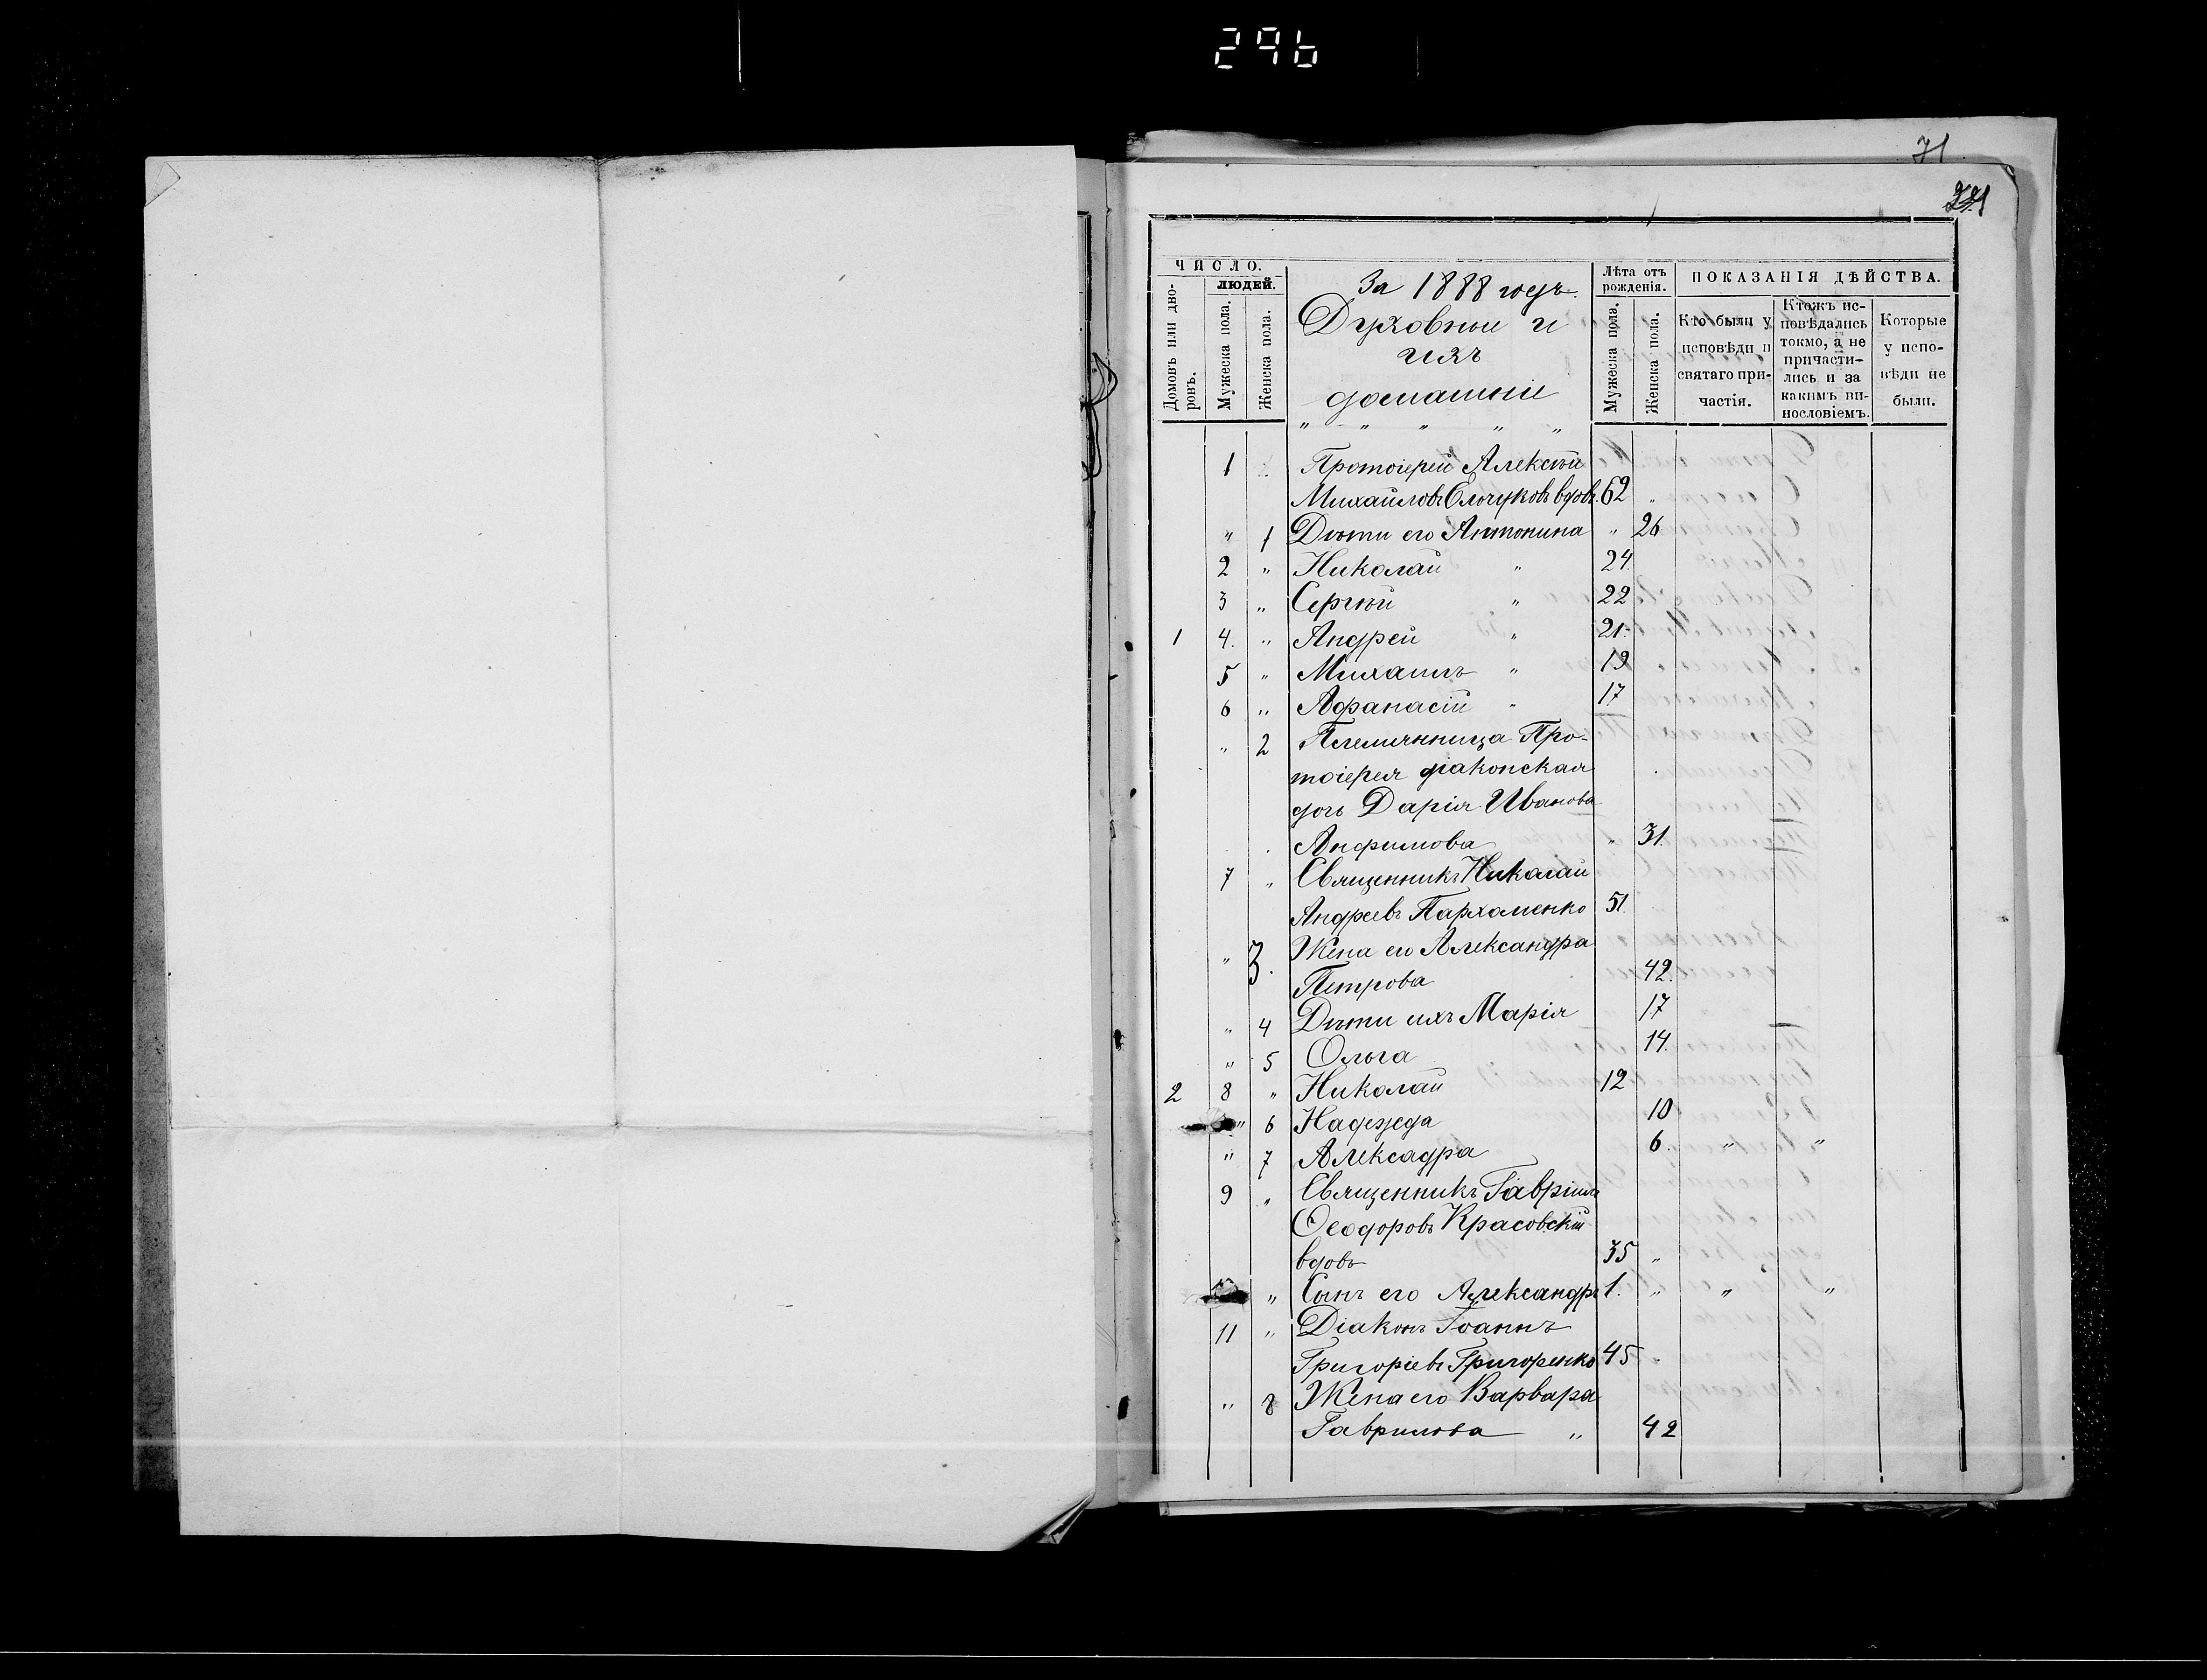 296
71
ЧИСЛО.
Домовъ или дворовъ.
ЛЮДЕЙ.
Мужеска пола.
Женска пола.
За 1888 годъ.
Духовные и
ихъ
домашніе
Лѣта отъ рожденія.
Мужеска пола.
Женска пола.
ПОКАЗАНІЯ ДѢЙСТВА.
Кто были у исповѣди и святаго причастія.
Ктожъ исповѣдались токмо, а не причастились и за какимъ винословіемъ.
Которые у исповѣди не были.
" " " " "
1 Протоіерей Алексѣй
Михайловъ вдовъ. 62 "
" 1 Дѣти его Антонина " 26
2 " Николай " 24
3 " Сергѣй " 22
1 4. " Андрей " 21.
5 " Михаилъ " 19
6 " Афанасій " 17
" 2 Племянница Про-
тоіерея діаконская
дочь Дарія Иванова
Анфимова " 31.
7 " Священникъ Николай
Андреевъ Пархоменко 51.
" 3. Жена его Александра
Петрова 42.
" 4 Дѣти ихъ Марія 17
" 5 Ольга 14.
2 8 " Николай 12
" 6 Надежда 10
" 7 Алексадра 6. " "
9 " Священникъ Гавріилъ
Ѳеодоровъ Красовскій
вдовъ 35 "
" Сынъ его Александръ 1. " " "
11 " Діаконъ Іоаннъ
Григоріевъ Григоренко 45 "
" 8 Жена его Варвара
Гаврилова " 42